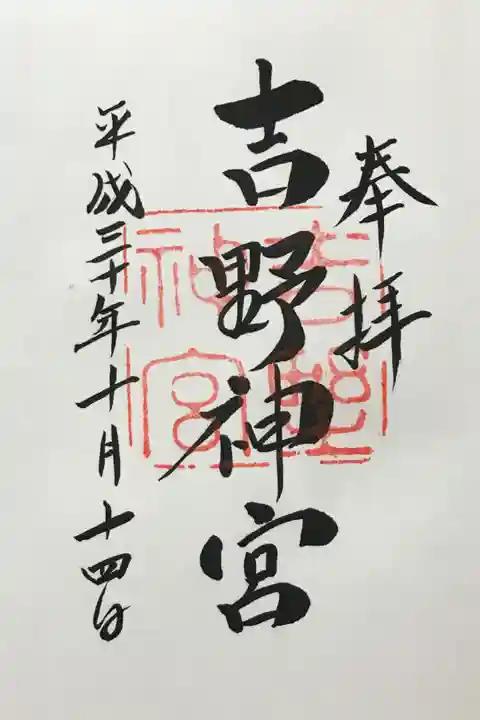 奉拝
吉野神宮
吉野神宮
平成三十年十月十四日